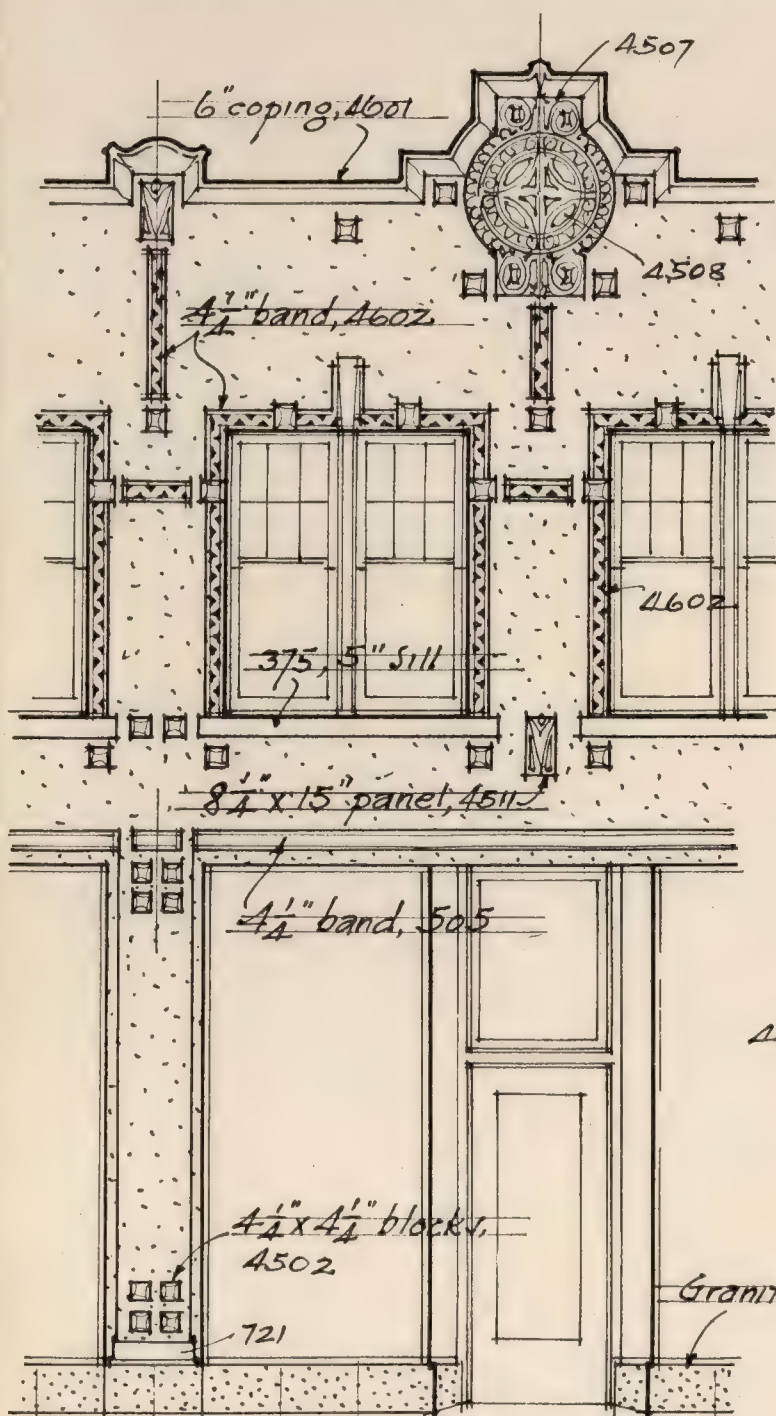 4507
6" coping, 4601
4508
4 1/4" band, 4602
4602
375, 5" sill
8 1/4" x 15" panel, 4511
4 1/4" band, 505
4 1/4" x 4 1/4" blocks,
4502
721
Granit